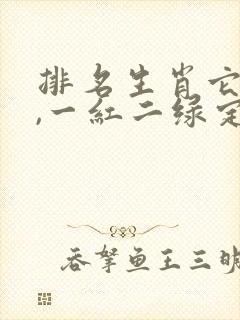 排名生肖它
,一紅二绿定
吞拏鱼王三明